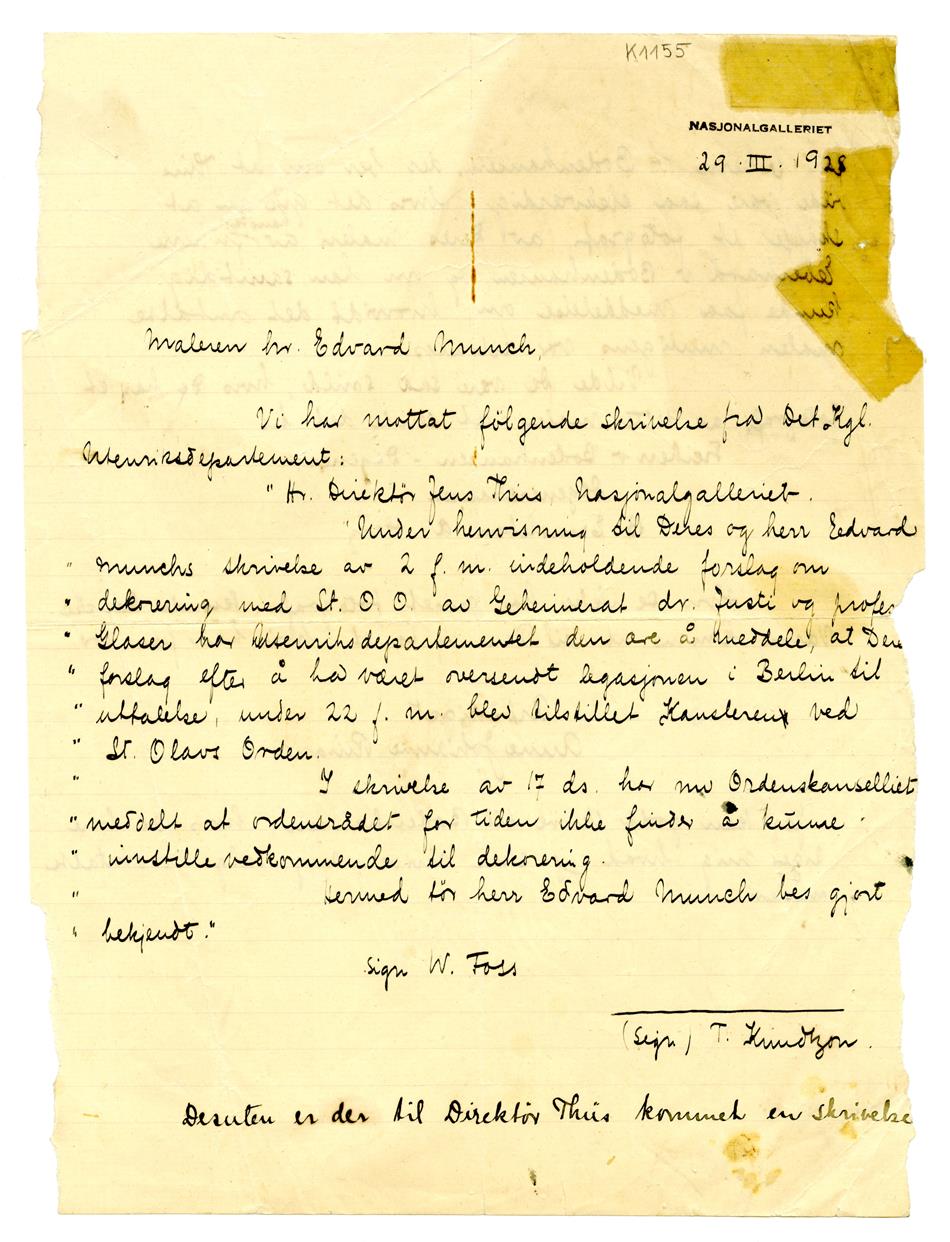 K1155
NASJONALGALLERIET
29.III.1928
Maleren hr. Edvard Munch,
Vi har mottat følgende skrivelse fra Det Kgl.
Utenriksdepartement:
" Hr. Direktør Jens Thiis, Nasjonalgalleriet.
"Under henvisning til Deres og herr Eedvard
" Munchs skrivelse av 2 f. m. indeholdende forslag om
" dekorering med St. O O. av Geheimerat dr. Justi og profes
" Glaser har Utenriksdepartementet den ære å meddele, at Dere
" forslag efter å ha været oversendt legasjonen i Berlin til
" uttalelse, under 22 f. m. blev tilstillet Kansleren ved
" St. Olavs Orden.
" I skrivelse av 17 ds. har nu Ordenskanselliet
" meddelt at ordensrådet for tiden ikke finder å kunne
" innstille vedkommende til dekorering.
" Hermed tør herr Edvard Munch bes gjort
" bekjendt."
sign W. Foss
(sign) T. Knudtzon.
Desuten er der til Direktør Thiis kommet en skrivelse